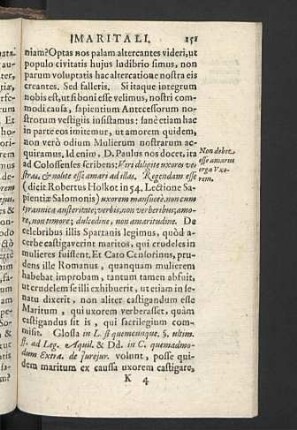 IMARITALI. 151
niam? Optas nos palam altercantes videri, ut
populo civitatis hujus ludibrio simus, non
parum voluptatis hac altercatione nostra eis
creantes. Sed falleris. Si itaque integrum
nobis est, ut si boni esse velimus, nostri com-
modi causa, sapientium Antecessorum nos-
trorum vestigiis insistamus: sanè etiam hac
in parte eos imitemur, ut amorem quidem,
non verò odium Mulierum nostrarum ac-
quiramus, Id enio, D. Paulus nos docet, ita
ad Colossenses scribens: Viri diligite uxores ve-
stras, & nolite esse amari ad illas. Regendam esse
(dicit Robertus Holkot in 54. Lectione Sa-
pientiæ Salomonis) uxorem mansuetè, non cum
tyrannica austeritate; verbis, non verberibus; amo-
re, non timore; dulcedine, non amaritudine. De
celebribus illis Spartanis legimus, quòd a-
cerbe castigaverint maritos, qui crudeles in
mulieres fuissent. Et Cato Censorinus, pru-
dens ille Romanus, quanquam mulierem
habebat improbam, tantum tamen abfuit,
ut crudelem se illi exhibuerit, ut etiam in se-
natu dixerit, non aliter castigandum esse
Maritum, qui uxorem verberasset. quàm
castigandus sit is, qui sacrilegium com-
misit. Glossa in L. si quemcunque. §. ultim.
ff. ad Leg. Aquil. & Dd. in C. quemadmo-
dum Extra. de jurejur. volunt, posse qui-
dem maritum ex caussa uxorem castigare,
K 4
Non debet
esse amarus
erga Uxo-
rem.